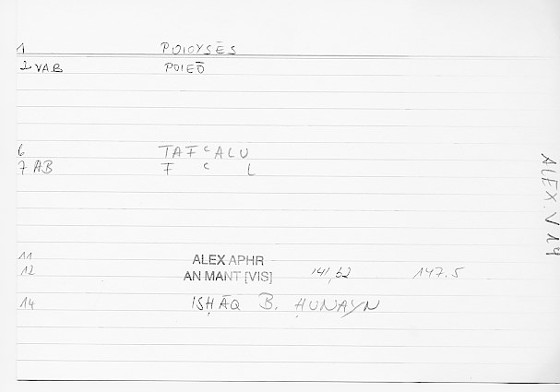 1 POIOYSĒS
2 VAB POIEŌ
6 TAFᶜALU
7 AB F ᶜ L
11 ALEX APHR
12 AN MANT [VIS] 141,62 147.5
14 ISḤĀQ B. ḤUNAYN
ALEX. V 14